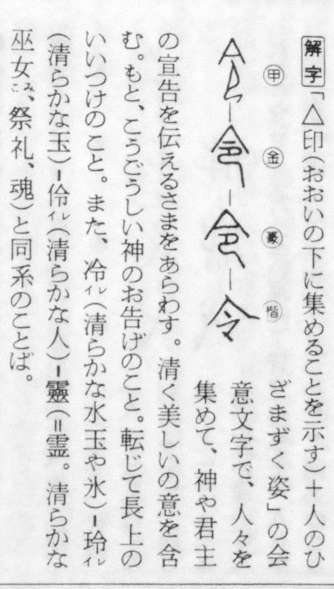 解字「△印(おおいの下に集めることを示す)＋人のひ
ざまずく姿」の会
意文字で、人々を
集めて、神や君主
甲 金 篆 楷
令
の宣告を伝えるさまをあらわす。清く美しいの意を含
む。もと、こうごうしい神のお告げのこと。転じて長上の
いいつけのこと。また、冷ィレ(清らかな水玉や氷)ー玲ィレ
(清らかな玉)ー伶ィレ(清らかな人)ー靈(＝霊。清らかな
巫女ﾐこ、祭礼、魂)と同系のことば。